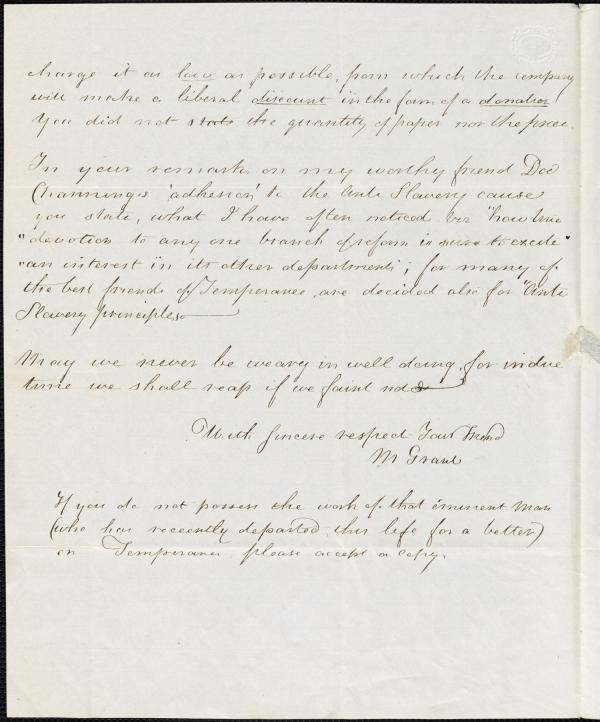 charge it as low as possible, from which the company
will make a liberal discount in the form of a donation
You did not state the quantity of paper nor the price.
In your remarks on my worthy friend Doc
Channings 'adhesion' to the Anti Slavery cause
you state, what I have often noticed viz "how true
"devotion to any one branch of reform is sure to excite"
"an interest in its other departments"; for many of
the best friends of Temperance, are decided also for "Anti
Slavery principles
May we never be weary in well doing, for in due
time we shall reap if we faint not
With sincere respect Your friend
M Grant
If you do not possess the work of that eminent man
(who has recently departed this life for a better)
on Temperance please accept a copy.